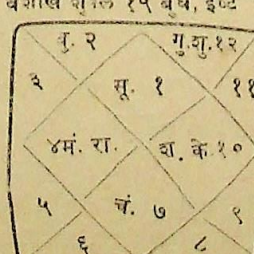 वैशाख शुक्ल १५ बुध, इष्ट
बु. २ गु.शु.१२
३ सू. १ ११
४मं. रा. श. के.१०
५ चं. ७ ९
६ ८